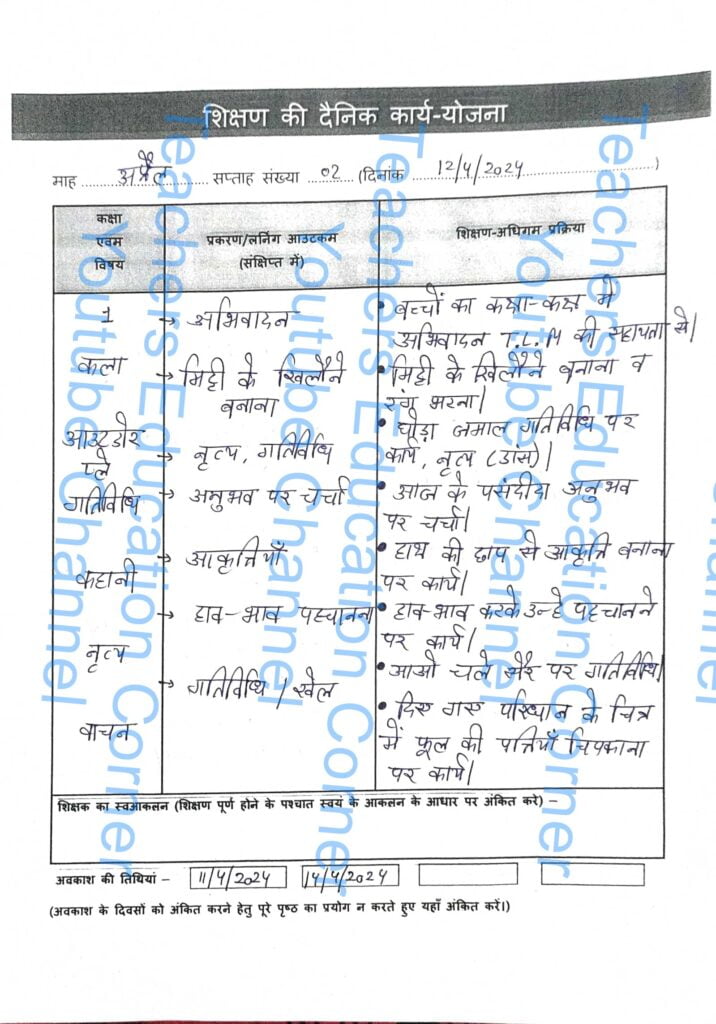 शिक्षण की दैनिक कार्य-योजना
माह अप्रैल सप्ताह संख्या 02 (दिनांक 12/4/2024)
कक्षा
एवम
विषय
प्रकरण/लर्निंग आउटकम
(संक्षिप्त में)
शिक्षण-अधिगम प्रक्रिया
1
कला
आउटडोर
प्ले
गतिविधि
कहानी
नृत्य
वाचन
→ अभिवादन
→ मिट्टी के खिलौने
बनाना
→ नृत्य, गतिविधि
→ अनुभव पर चर्चा
→ आकृत्तियाँ
→ हाव-भाव पहचानना
→ गतिविधि / खेल
• बच्चों का कक्षा-कक्ष में
अभिवादन T.L.M की सहायता से।
• मिट्टी के खिलौने बनाना व
रंग भरना।
• घोड़ा जमाल गतिविधि पर
कार्य, नृत्य (डांस)।
• आज के पसंदीदा अनुभव
पर चर्चा।
• हाथ की छाप से आकृत्ति बनाना
पर कार्य।
• हाव-भाव करके उन्हे पहचानने
पर कार्य।
• आओ चले सैर पर गतिविधि।
• दिए गए परिधान के चित्र
में फूल की पत्तियाँ चिपकाना
पर कार्य।
शिक्षक का स्वआकलन (शिक्षण पूर्ण होने के पश्चात स्वयं के आकलन के आधार पर अंकित करे) –
अवकाश की तिथियां – 11/4/2024 14/4/2024
(अवकाश के दिवसों को अंकित करने हेतु पूरे पृष्ठ का प्रयोग न करते हुए यहाँ अंकित करें।)
Teachers Education Corner
Youtube Channel
Teachers Education Corner
Youtube Channel
Teachers Education Corner
Youtube Channel